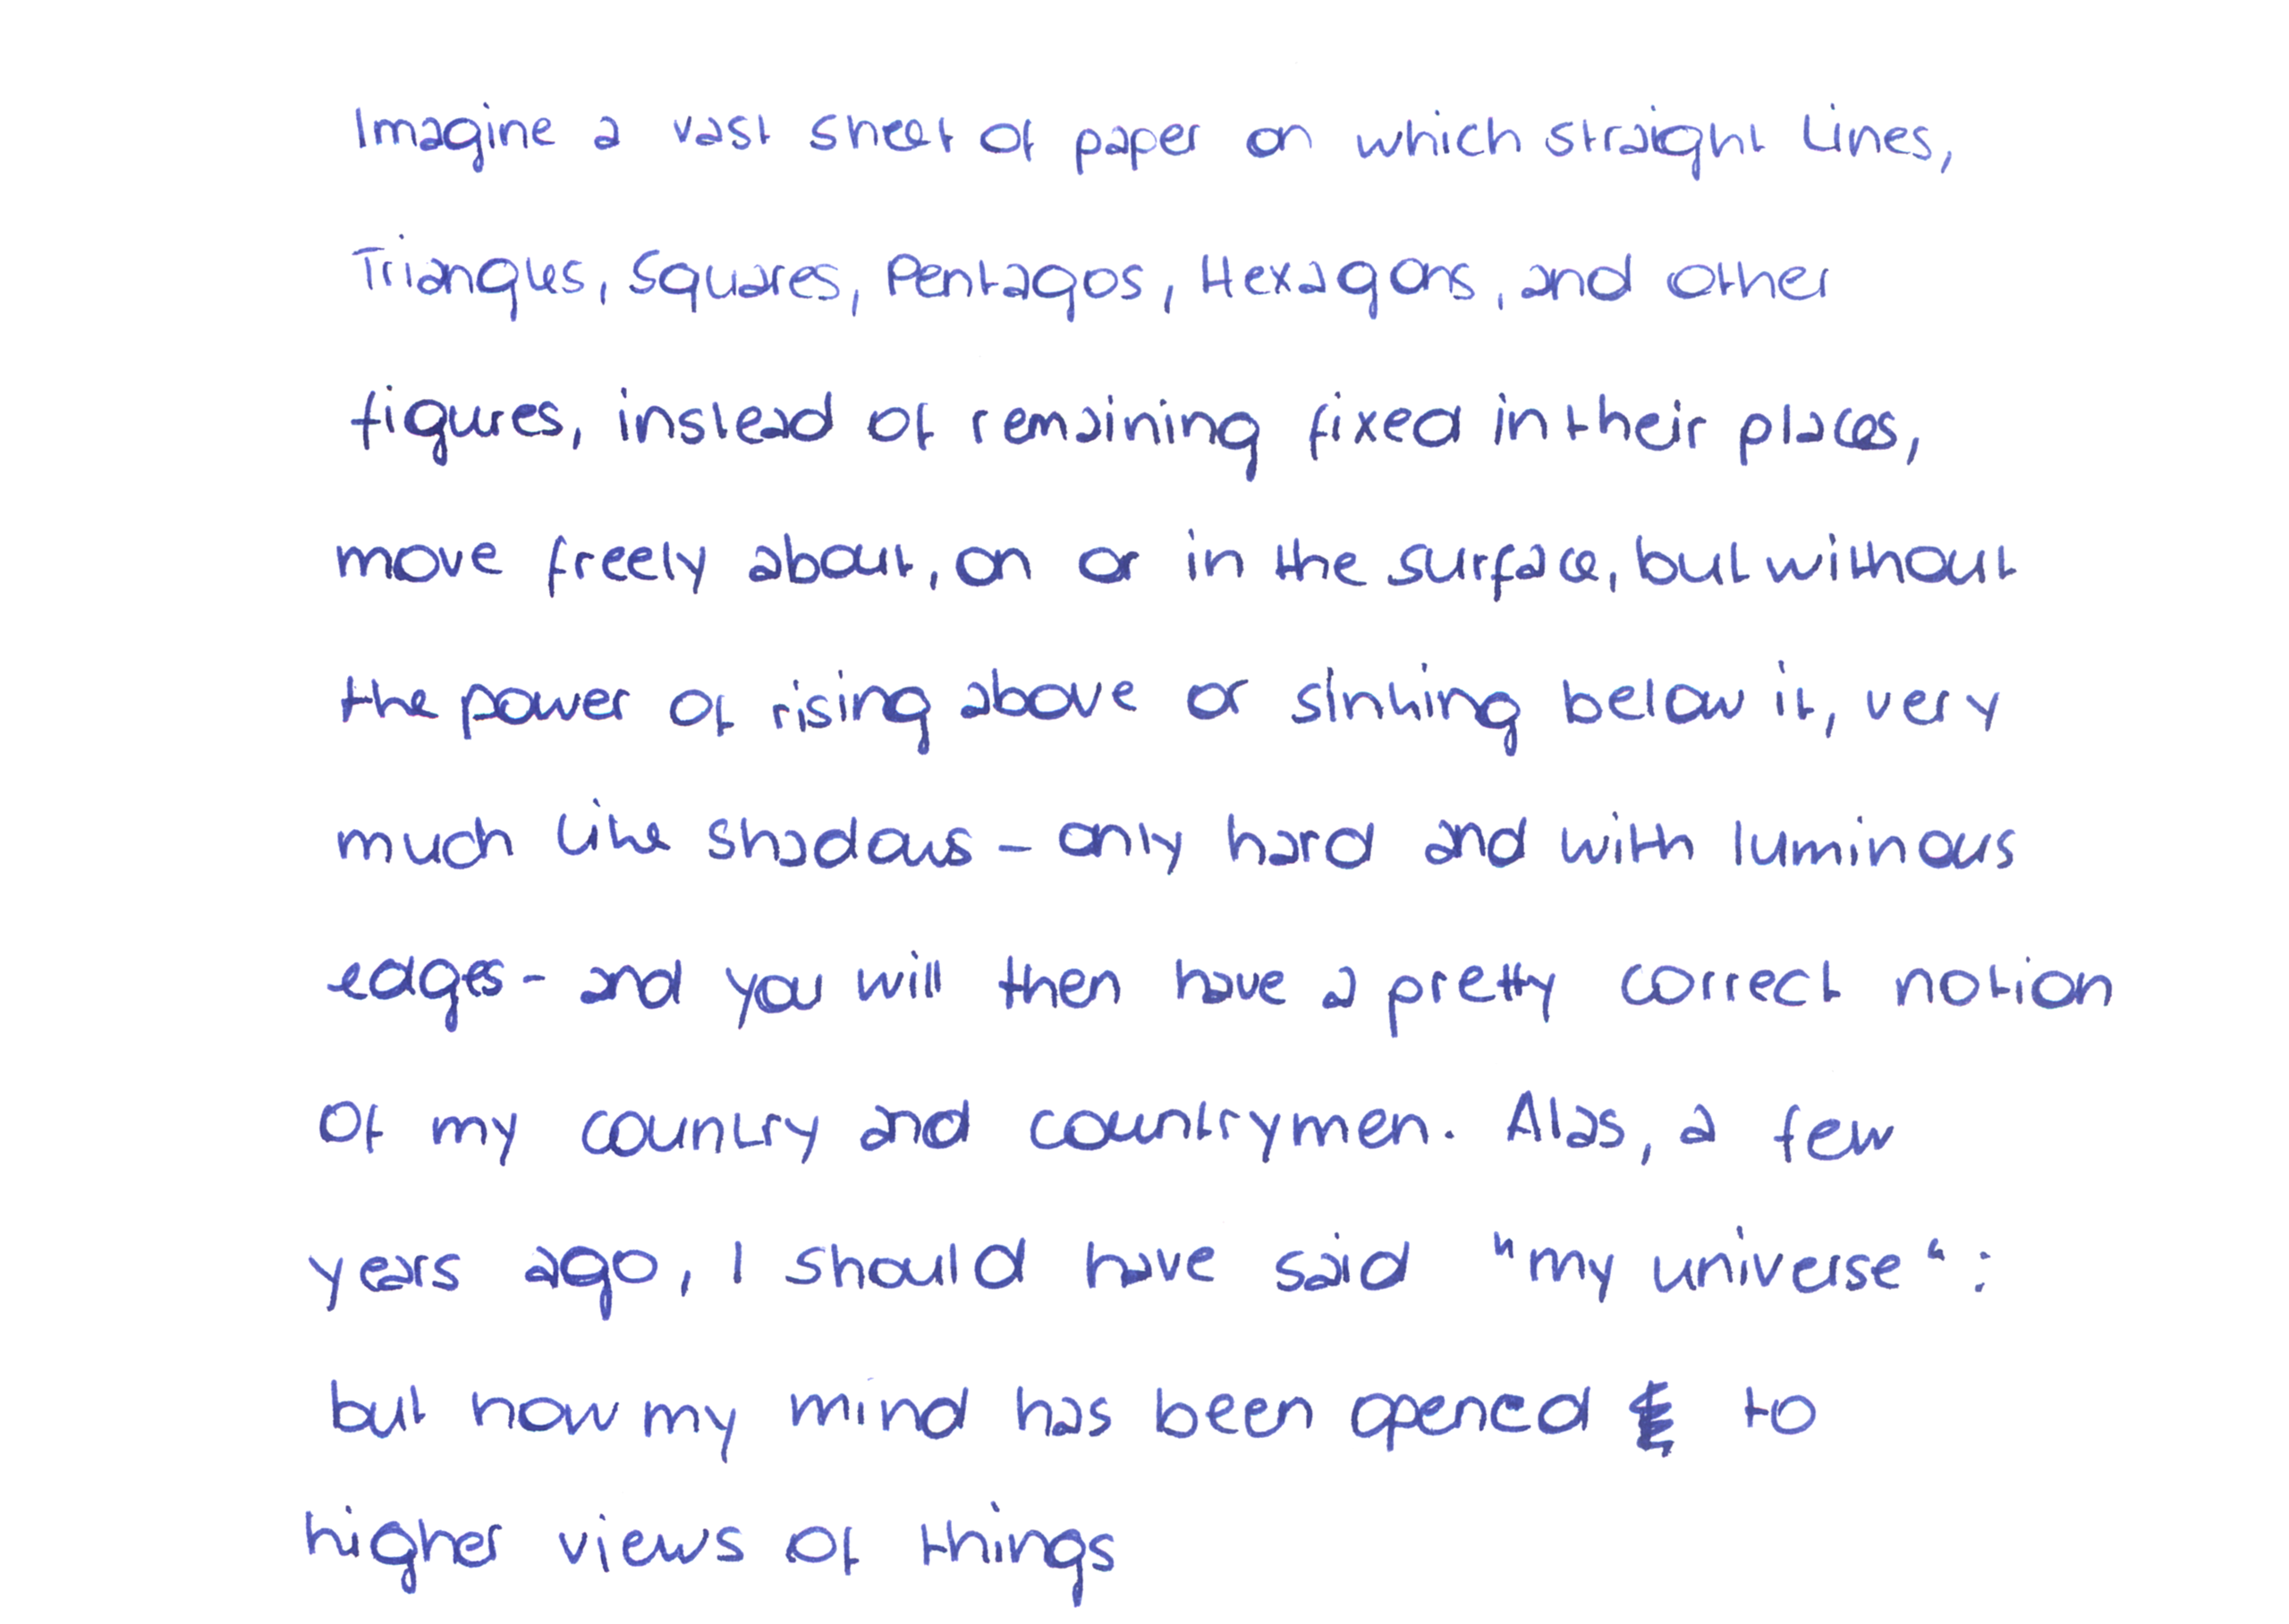 Imagine a vast sheet of paper on which straight Lines,
Triangles, Squares, Pentagos, Hexagons, and other
figures, instead of remaining fixed in their places,
move freely about, on or in the surface, but without
the power of rising above or sinking below it, very
much like shadows - only hard and with luminous
edges - and you will then have a pretty correct notion
of my country and countrymen. Alas, a few
years ago, I should have said "my universe":
but now my mind has been opened to
higher views of things